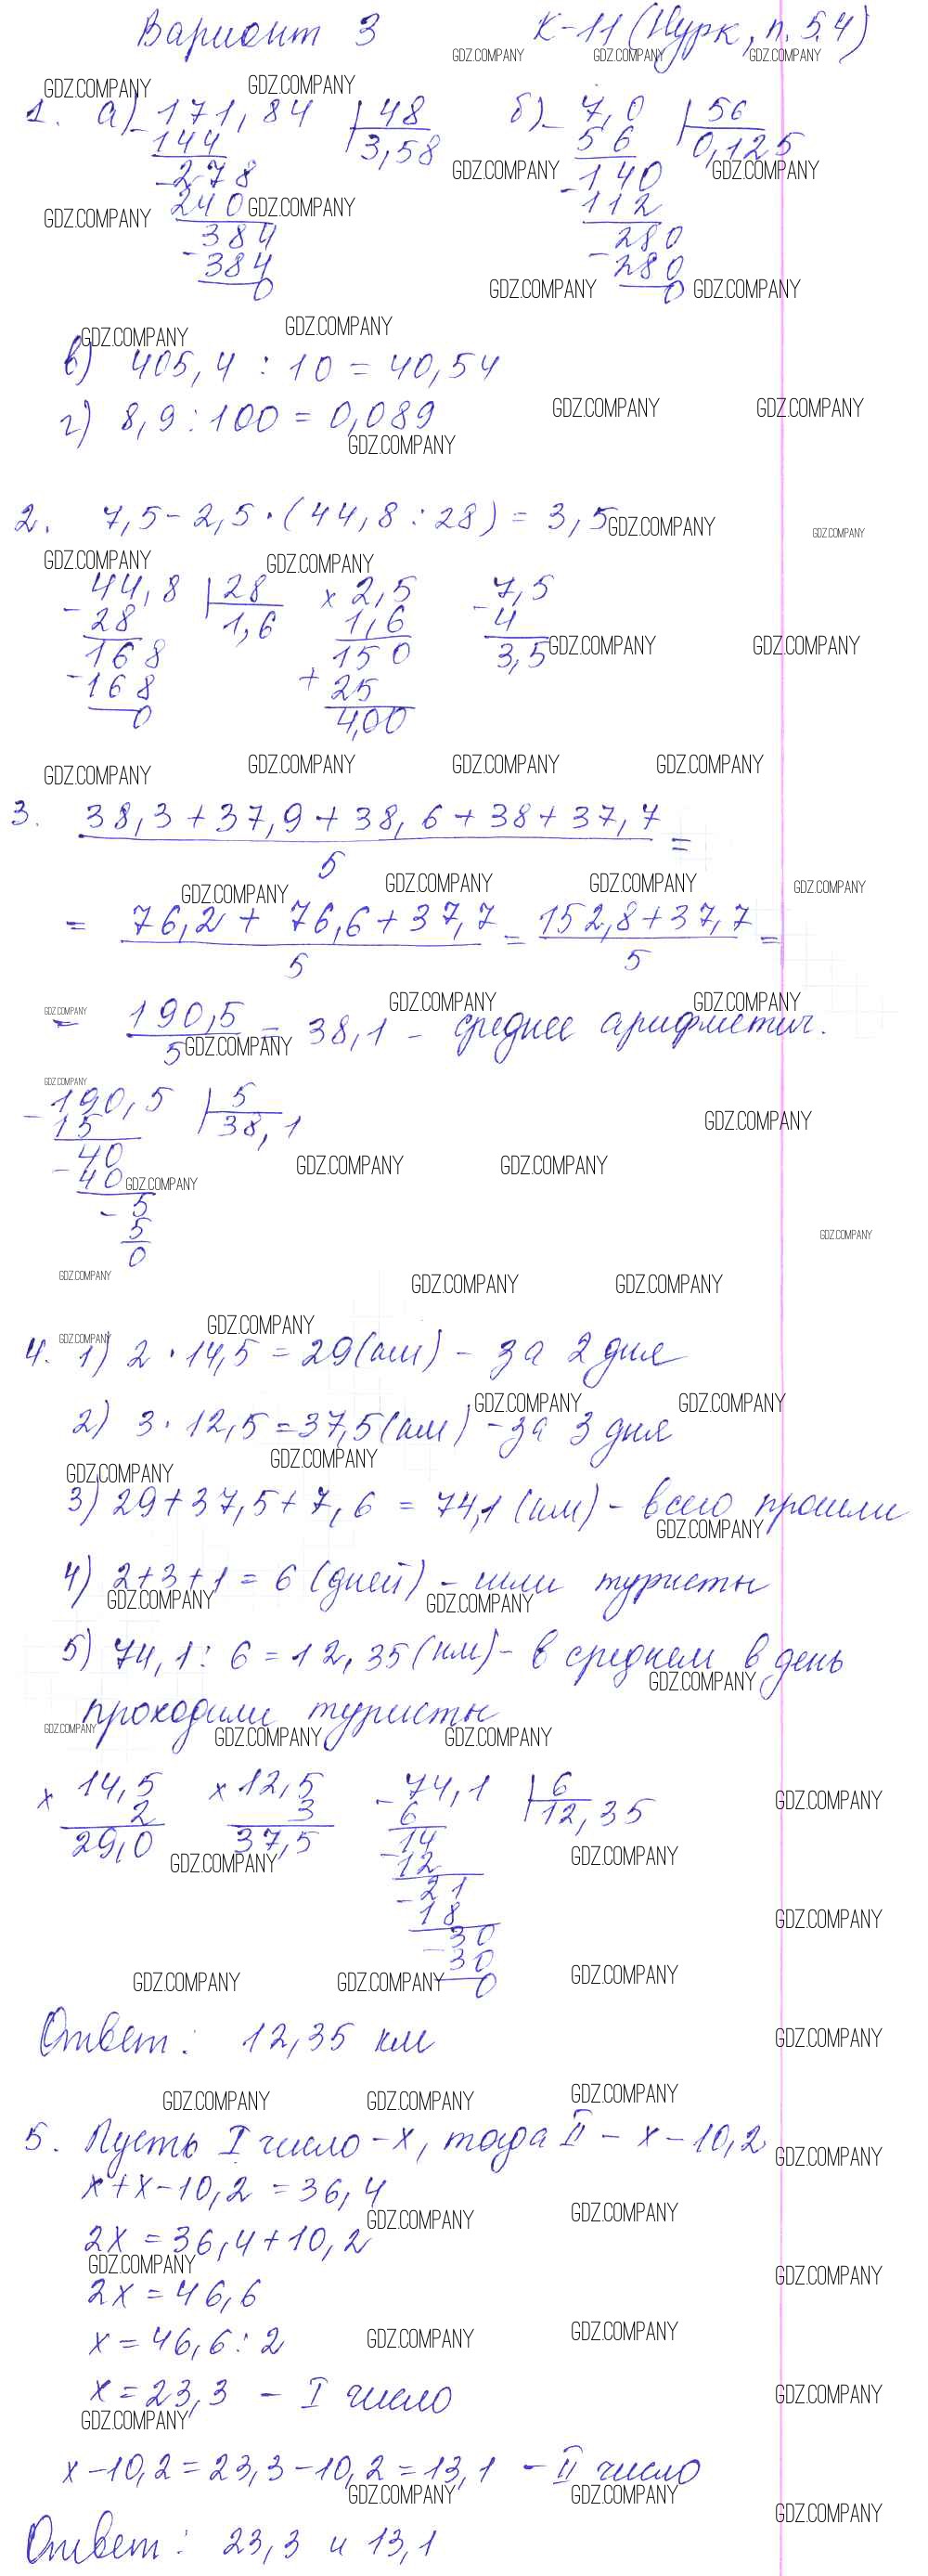 Вариант 3 К-11 (Нурк, п. 5.4)
1. а) 171,84 | 48
144 3,58
278
240
384
384
0
б) 7,0 | 56
56 0,125
140
112
280
280
0
в) 405,4 : 10 = 40,54
г) 8,9 : 100 = 0,089
2. 7,5 - 2,5 · (44,8 : 28) = 3,5
44,8 | 28
28 1,6
168
168
0
× 2,5
1,6
150
+ 25
4,00
- 7,5
4
3,5
3. 38,3 + 37,9 + 38,6 + 38 + 37,7 =
5
= 76,2 + 76,6 + 37,7 = 152,8 + 37,7 =
5 5
= 190,5 = 38,1 - среднее арифметич.
5
190,5 | 5
15 38,1
40
40
5
5
0
4. 1) 2 · 14,5 = 29 (км) - за 2 дня
2) 3 · 12,5 = 37,5 (км) - за 3 дня
3) 29 + 37,5 + 7,6 = 74,1 (км) - всего прошли
4) 2 + 3 + 1 = 6 (дней) - шли туристы
5) 74,1 : 6 = 12,35 (км) - в среднем в день
проходили туристы
× 14,5
2
29,0
× 12,5
3
37,5
74,1 | 6
6 12,35
14
12
21
18
30
30
0
Ответ: 12,35 км
5. Пусть I число - x, тогда II - x - 10,2
x + x - 10,2 = 36,4
2x = 36,4 + 10,2
2x = 46,6
x = 46,6 : 2
x = 23,3 - I число
x - 10,2 = 23,3 - 10,2 = 13,1 - II число
Ответ: 23,3 и 13,1
GDZ.COMPANY